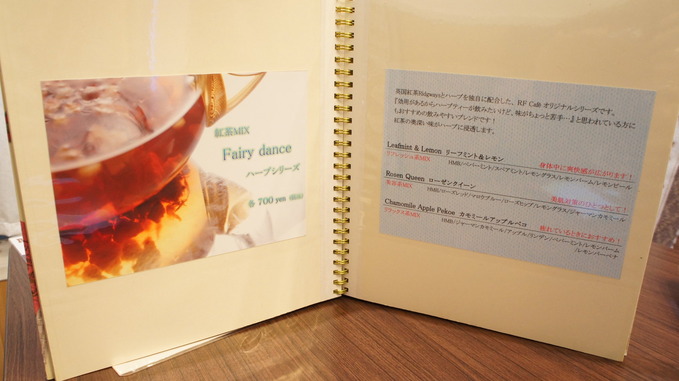 紅茶MIX
Fairy dance
ハーブシリーズ
各 700 yen
英国紅茶Ridgwaysとハーブを独自に配合した、RF Café オリジナルシリーズです。
『効用があるからハーブティーが飲みたいけど、味がちょっと苦手…』と思われている方に
もおすすめの飲みやすいブレンドです!
紅茶の奥深い味がハーブに浸透します。
Leafmint & Lemon リーフミント&レモン
リフレッシュ系MIX 身体中に爽快感が広がります!
HMB/ペパーミント/スペアミント/レモングラス/レモンバーム/レモンピール
Rosen Queen ローゼンクイーン
美容系MIX 美肌対策のひとつとして!
HMB/ローズレッド/マロウブルー/ローズヒップ/レモングラス/ジャーマンカモミール
Chamomile Apple Pekoe カモミールアップルペコ
リラックス系MIX 疲れているときにおすすめ!
HMB/ジャーマンカモミール/アップル/リンデン/ペパーミント/レモンバーム
/レモンバーベナ